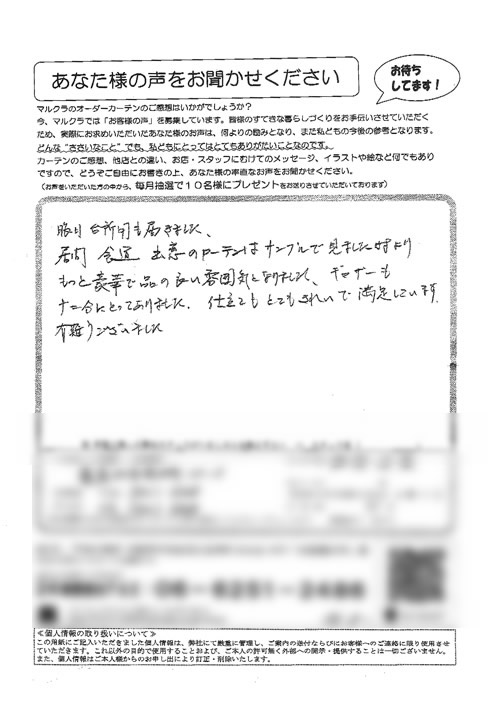 あなた様の声をお聞かせください
お待ち
してます！
マルクラのオーダーカーテンのご感想はいかがでしょうか？
今、マルクラでは「お客様の声」を募集しています。皆様のすてきな暮らしづくりをお手伝いさせていただく
ため、実際にお求めいただいたあなた様のお声は、何よりの励みとなり、また私どもの今後の参考となります。
どんな“ささいなこと”でも、私どもにとってはとてもありがたいことなのです。
カーテンのご感想、他店との違い、お店・スタッフにむけてのメッセージ、イラストや絵など何でもあり
ですので、どうぞご自由にお書きの上、あなた様の率直なお声をお聞かせください。
（お声をいただいた方の中から、毎月抽選で１０名様にプレゼントをお送りさせていただいております）
台所用も届きました、
居間 食堂 出窓のカーテンはサンプルで見ました時より
もっと豪華で品の良い雰囲気となりました、ギャザーも
とってありました. 仕立てもとてもきれいで満足しています
有難うございました
≪個人情報の取り扱いについて≫
この用紙にご記入いただきました個人情報は、弊社にて厳重に管理し、ご案内の送付ならびにお客様へのご連絡に限り使用させ
ていただきます。これ以外の目的で使用することおよび、ご本人の許可無く外部への開示・提供することは一切ございません。
また、個人情報はご本人様からのお申し出により訂正・削除いたします。